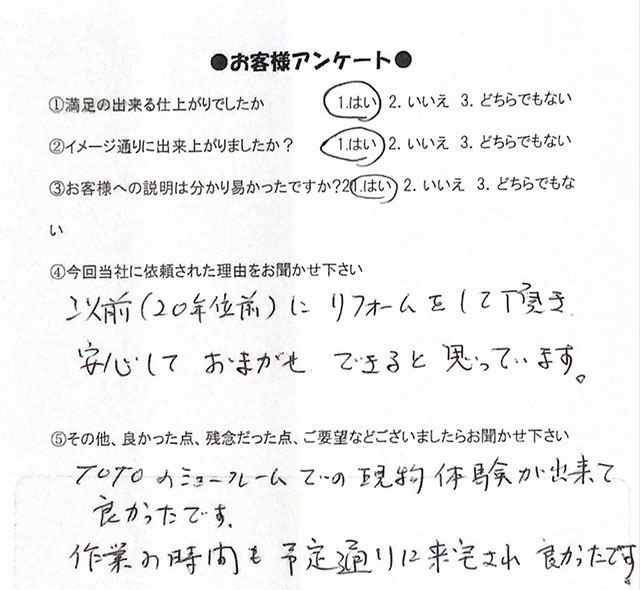 ●お客様アンケート●
①満足の出来る仕上がりでしたか 1.はい 2. いいえ 3. どちらでもない
②イメージ通りに出来上がりましたか？ 1.はい 2. いいえ 3. どちらでもない
③お客様への説明は分かり易かったですか?21.はい 2. いいえ 3. どちらでもな
い
④今回当社に依頼された理由をお聞かせ下さい
以前(20年位前)に リフォームをして頂き
安心して おまかせ できると 思っています。
⑤その他、良かった点、残念だった点、ご要望などございましたらお聞かせ下さい
TOTOのミュールームでの現物体験が出来て
良かったです。
作業の時間も予定通りに来宅され 良かったです。